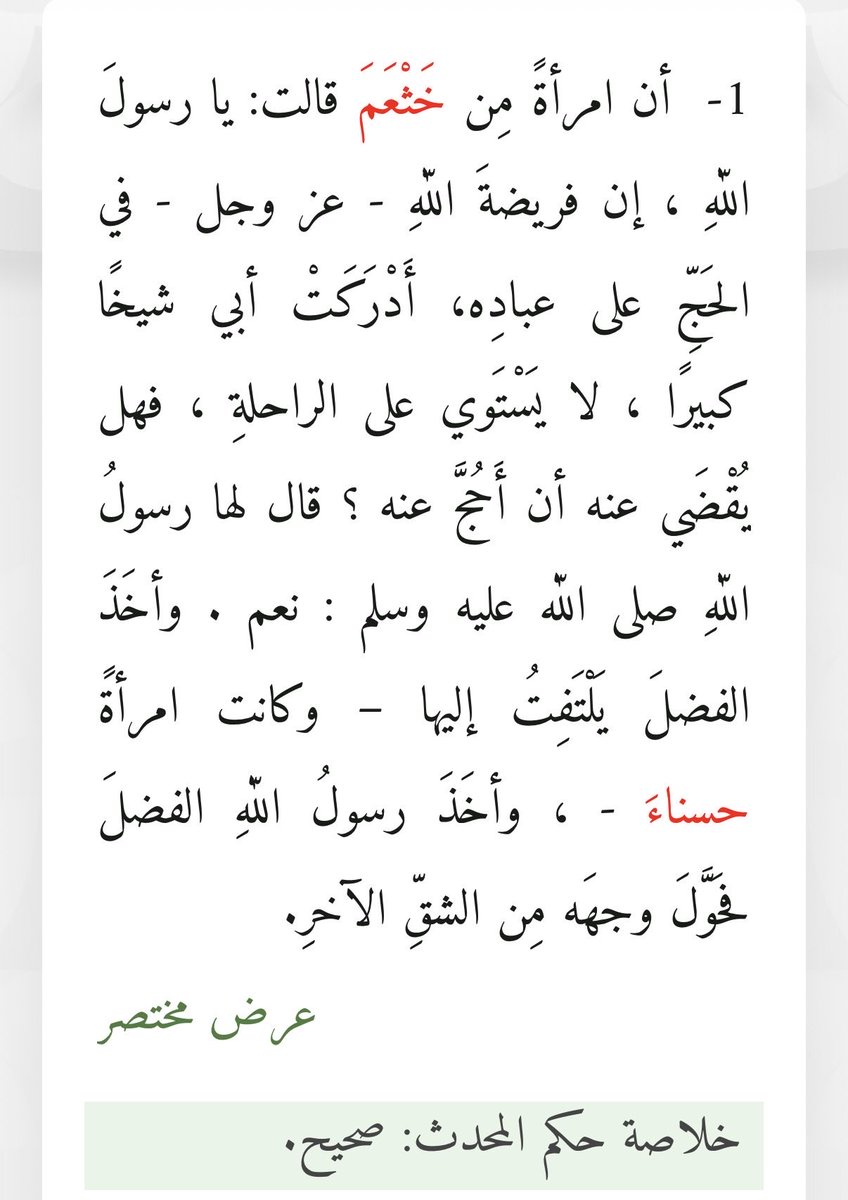 1- أن امرأةً مِن خَثْعَمَ قالت: يا رسولَ
اللهِ ، إن فريضةَ اللهِ - عز وجل - في
الحَجِّ على عبادِه، أَدْرَكَتْ أبي شيخًا
كبيرًا ، لا يَسْتَوي على الراحلةِ ، فهل
يُقْضَي عنه أن أَحُجَّ عنه ؟ قال لها رسولُ
اللهِ صلى الله عليه وسلم : نعم . وأخَذَ
الفضلَ يَلْتَفِتُ إليها – وكانت امرأةً
حسناءَ - ، وأخَذَ رسولُ اللهِ الفضلَ
فحَوَّلَ وجهَه مِن الشقِّ الآخرِ.
عرض مختصر
خلاصة حكم المحدث: صحيح.